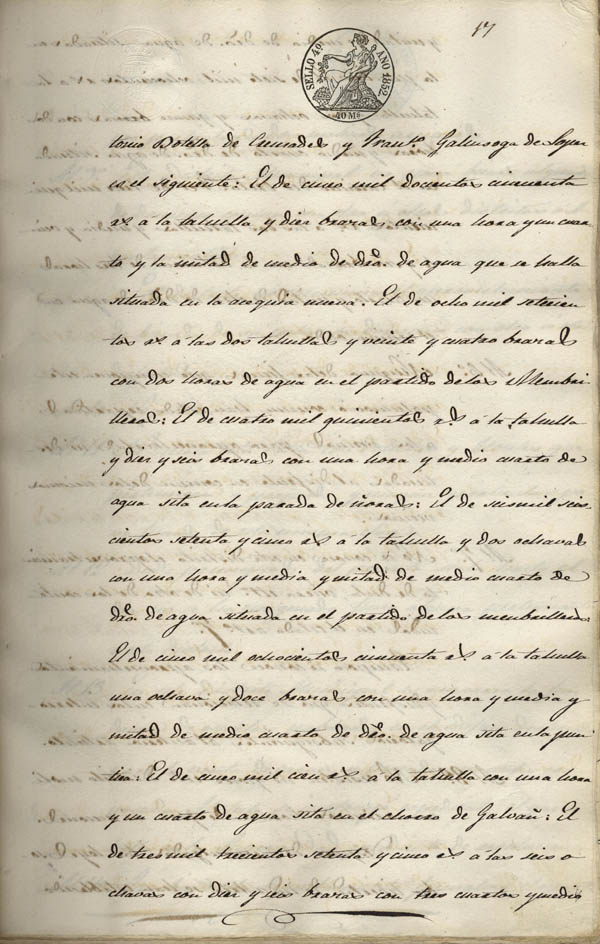 17
SELLO 4º AÑO 1852.
40 Ms
tonio Botella de Crevades y Franco. Galinsoga de
es el siguiente: El de cinco mil docientos cincuenta
rs. á la tahulla y diez brazas con una hora y un cuar-
to y la mitad de medio de dro. de agua que se halla
situada en la acequia nueva. El de ocho mil setecien-
tos rs. a las dos tahullas y veinte y cuatro brazas
con dos horas de agua en el partido de los Membri-
lleros: El de cuatro mil quinientos rs. á la tahulla
y diez y seis brazas con una hora y medio cuarto de
agua sita en la parada de ñoras: El de seis mil seis-
cientos setenta y cinco rs. á la tahulla y dos ochavas
con una hora y media y mitad de medio cuarto de
dro. de agua situada en el partido de los menbrilleros.
El de cinco mil ochocientos cincuenta rs. á la tahulla
una ochava y doce brazas con una hora y media y
mitad de medio cuarto de dro. de agua sita en la pun-
tra: El de cinco mil cien rs. a la tahulla con una hora
y un cuarto de agua sita en el chorro de Galvañ: El
de tres mil trecientos setenta y cinco rs á las seis o-
chavas con diez y seis brazas con tres cuartos y medio